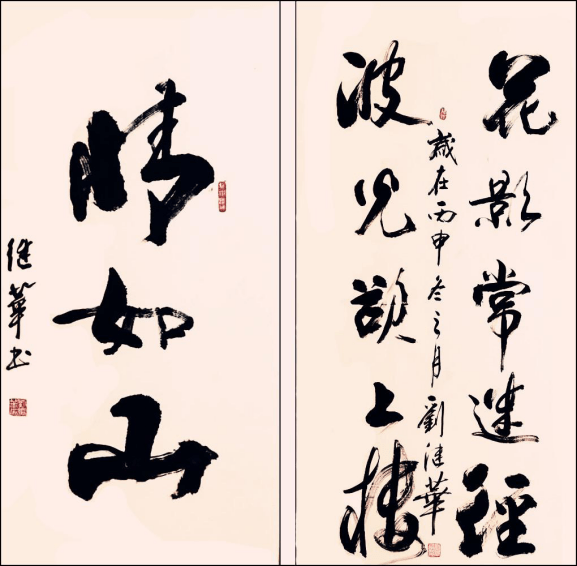 晴如山
继華书
花影常迷徑
波光欲上樓
歲在丙申冬之月劉继華